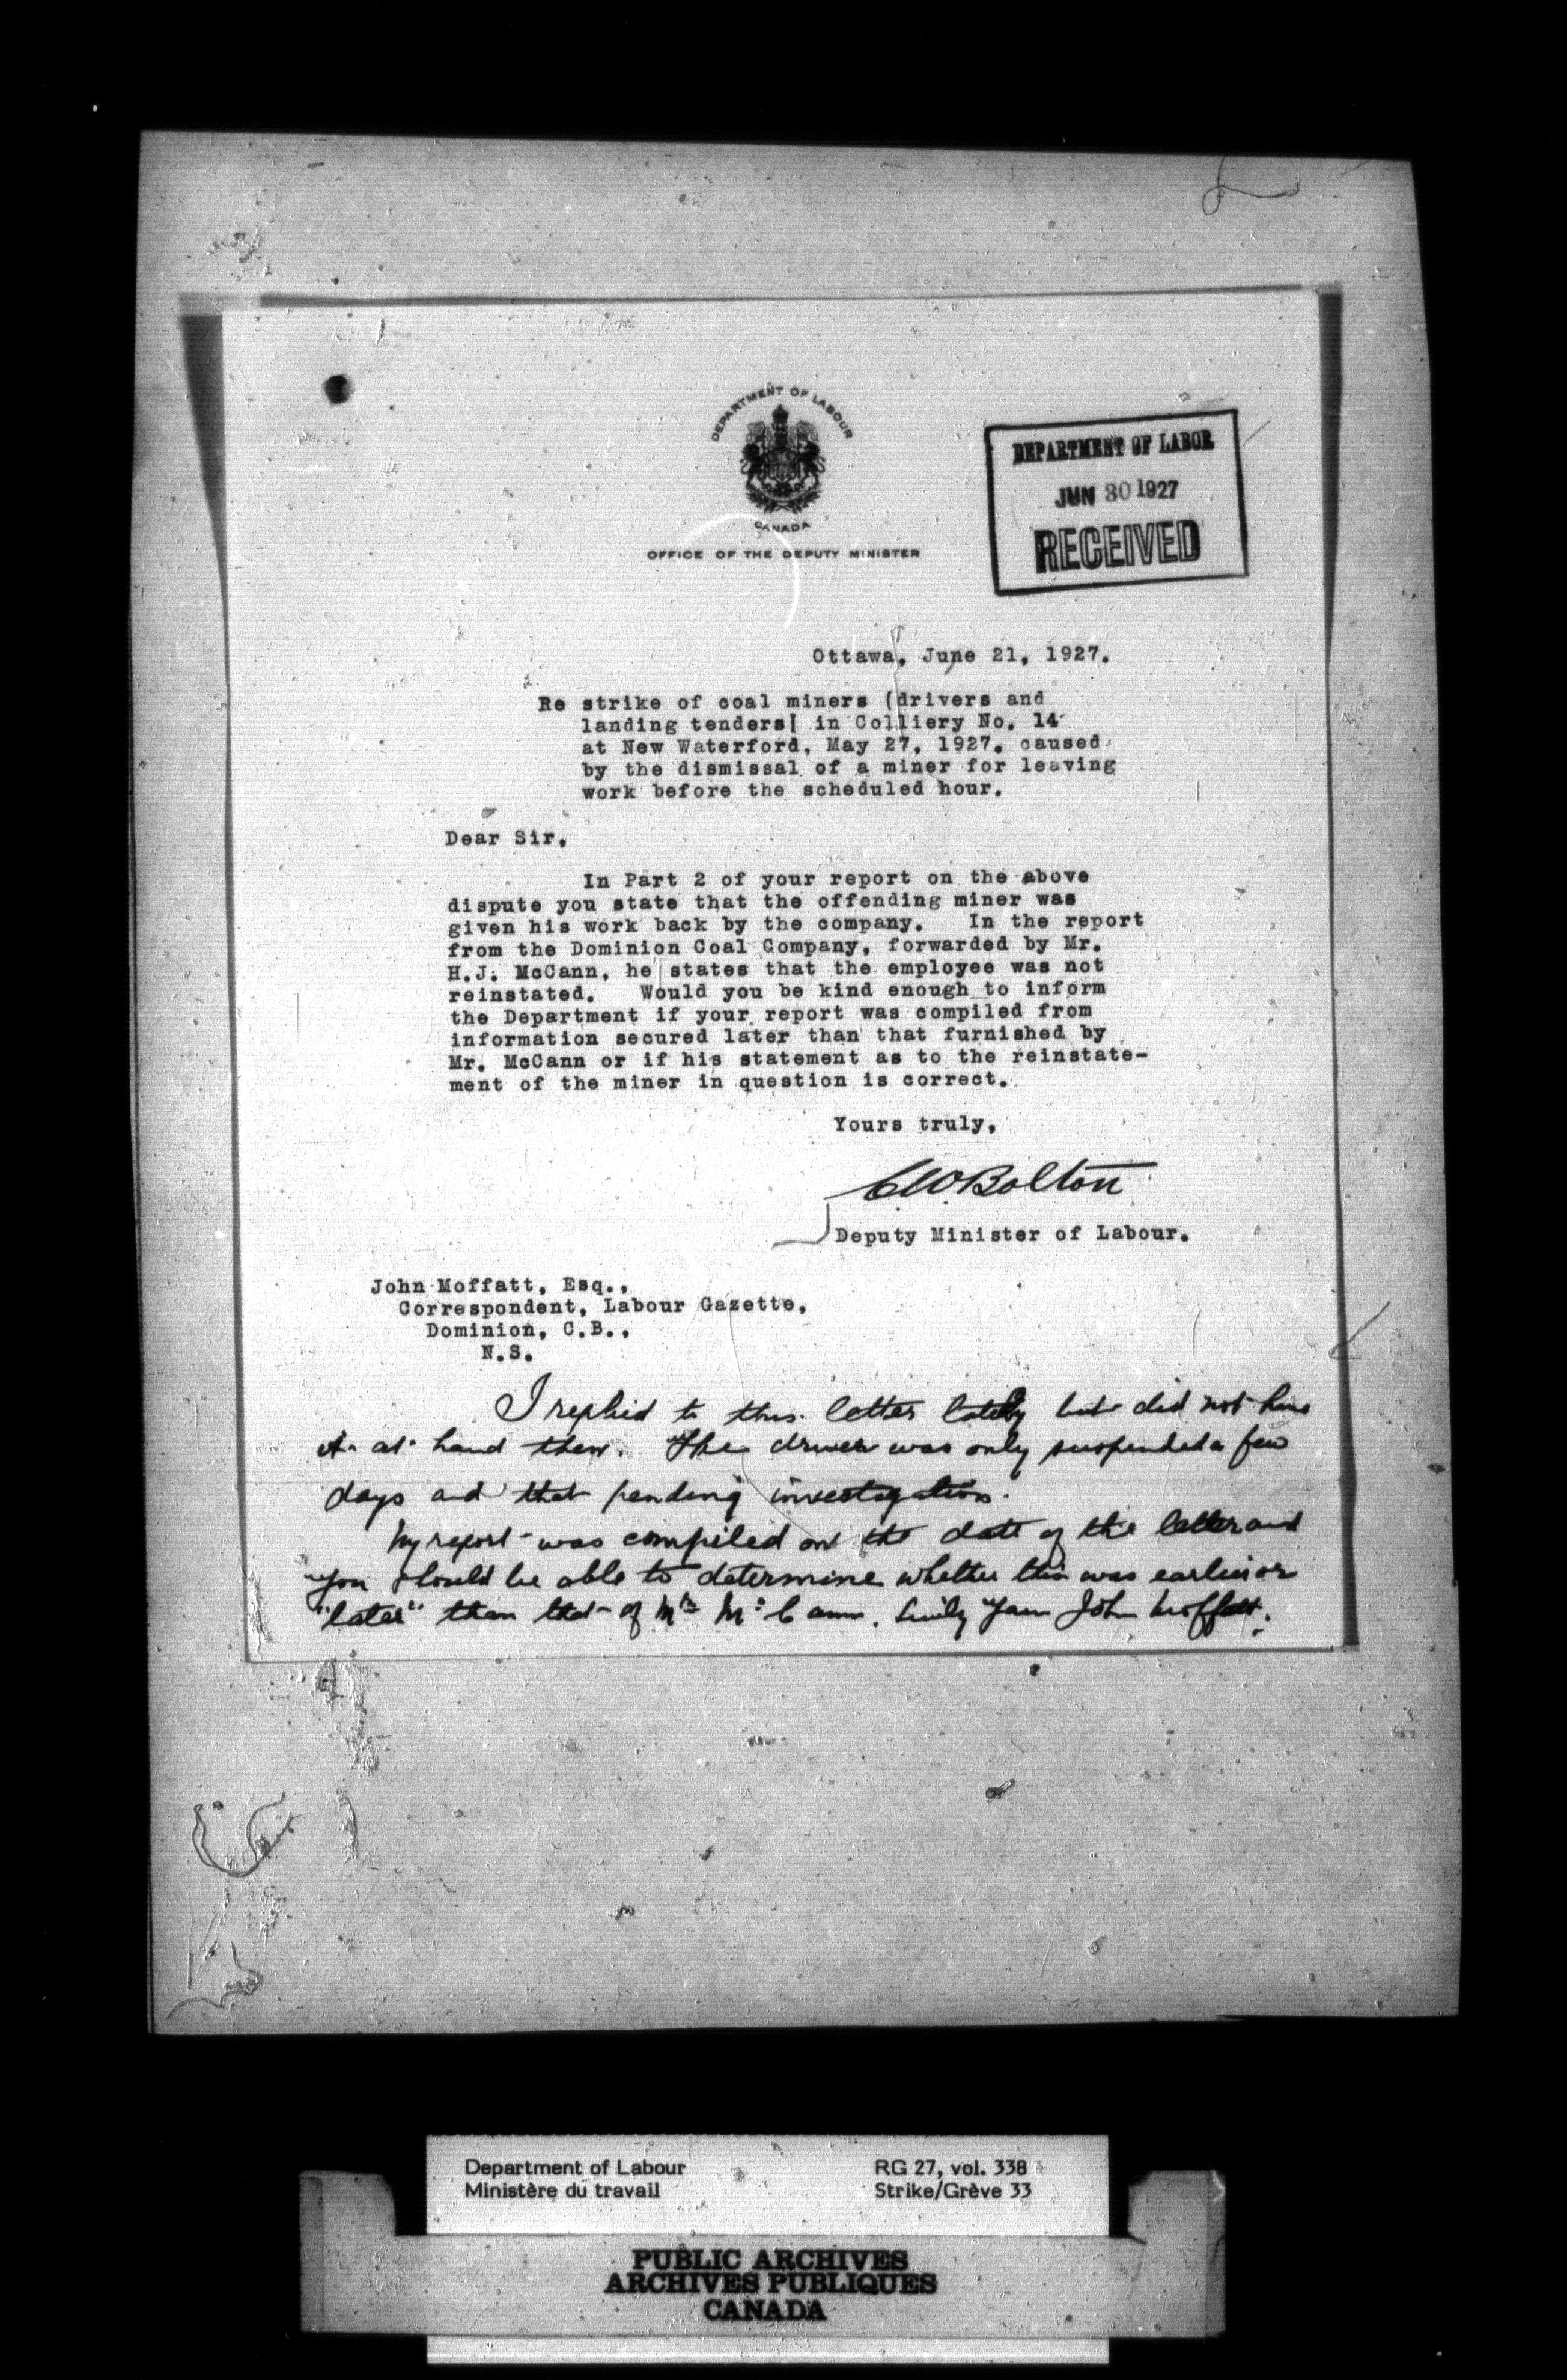 DEPARTMENT OF LABOUR
CANADA
OFFICE OF THE DEPUTY MINISTER
DEPARTMENT OF LABOR
JUN 30 1927
RECEIVED
Ottawa, June 21, 1927.
Re strike of coal miners (drivers and
landing tenders) in Colliery No. 14
at New Waterford, May 27, 1927. caused
by the dismissal of a miner for leaving
work before the scheduled hour.
Dear Sir,
In Part 2 of your report on the above
dispute you state that the offending miner was
given his work back by the company. In the report
from the Dominion Coal Company, forwarded by Mr.
H.J. McCann, he states that the employee was not
reinstated. Would you be kind enough to inform
the Department if your report was compiled from
information secured later than that furnished by
Mr. McCann or if his statement as to the reinstate-
ment of the miner in question is correct.
Yours truly,
Deputy Minister of Labour.
John Moffatt, Esq.,
Correspondent, Labour Gazette,
Dominion, C.B.,
N.S.
I replied to this letter lately but did not have
it at hand then. The driver was only suspended a few
days and that pending investigation.
My report was compiled on the date of the letter and
you should be able to determine whether this was earlier or
"later" than that of Mr McCann. Truly Yours John Moffatt.
Department of Labour
Ministère du travail
RG 27, vol. 338
Strike/Grève 33
PUBLIC ARCHIVES
ARCHIVES PUBLIQUES
CANADA